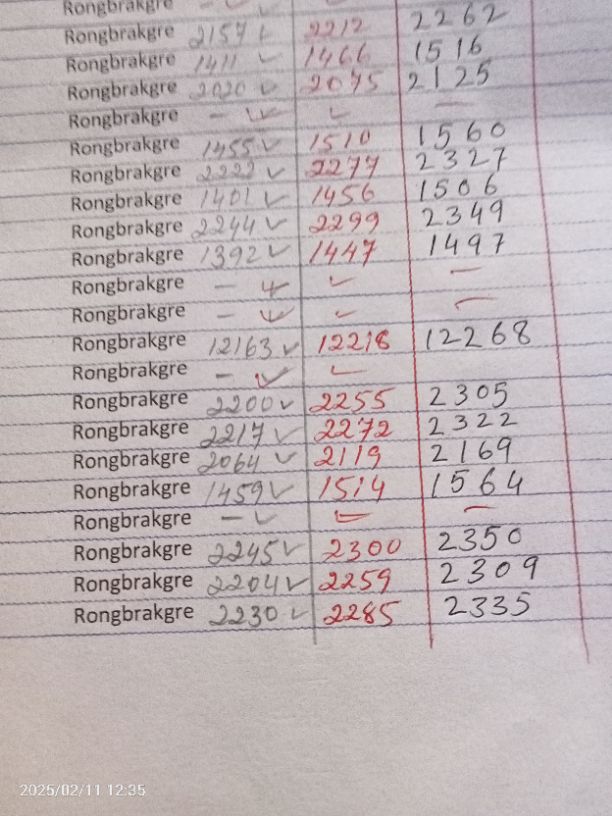 Rongbrakgre - ✓ ✓
Rongbrakgre 2157 ✓ 2212 2262
Rongbrakgre 1411 ✓ 1466 1516
Rongbrakgre 2020 ✓ 2075 2125
Rongbrakgre - ✓ ✓ -
Rongbrakgre 1455 ✓ 1510 1560
Rongbrakgre 2222 ✓ 2277 2327
Rongbrakgre 1401 ✓ 1456 1506
Rongbrakgre 2244 ✓ 2299 2349
Rongbrakgre 1392 ✓ 1447 1497
Rongbrakgre - ✓ ✓ -
Rongbrakgre - ✓ ✓ -
Rongbrakgre 12163 ✓ 12218 12268
Rongbrakgre - ✓ ✓
Rongbrakgre 2200 ✓ 2255 2305
Rongbrakgre 2217 ✓ 2272 2322
Rongbrakgre 2064 ✓ 2119 2169
Rongbrakgre 1459 ✓ 1514 1564
Rongbrakgre - ✓ ✓ -
Rongbrakgre 2245 ✓ 2300 2350
Rongbrakgre 2204 ✓ 2259 2309
Rongbrakgre 2230 ✓ 2285 2335
2025/02/11 12:35